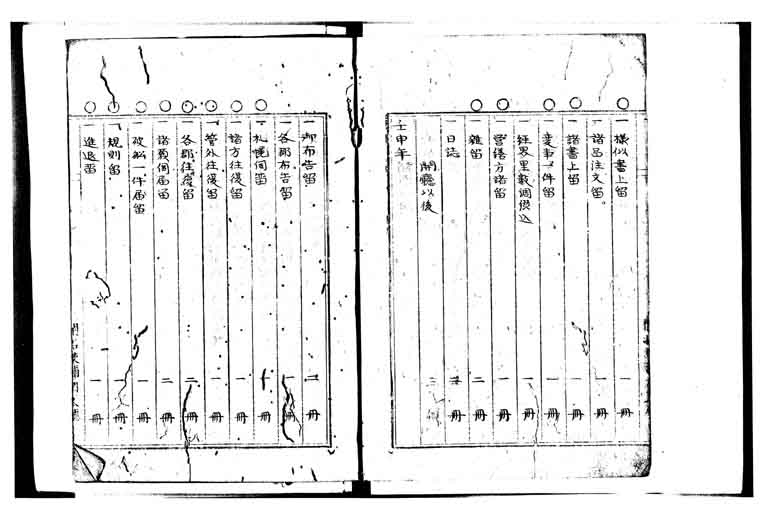 一様似書上留 一冊
一諸品注文留 一冊
一諸書上留 一冊
一変事一件留 一冊
一経界里数調 一冊
一営繕方諸留 一冊
一雑留 二冊
一日誌 冊
開庁以後
壬申年
一御布告留 二冊
一各郡布告留 一冊
一札幌伺留 冊
一諸方往復留 一冊
一管外往復留 一冊
一各郡往復留 二冊
一諸願伺届留 二冊
一破船一件届留 一冊
一規則留 一冊
一進退留 一冊